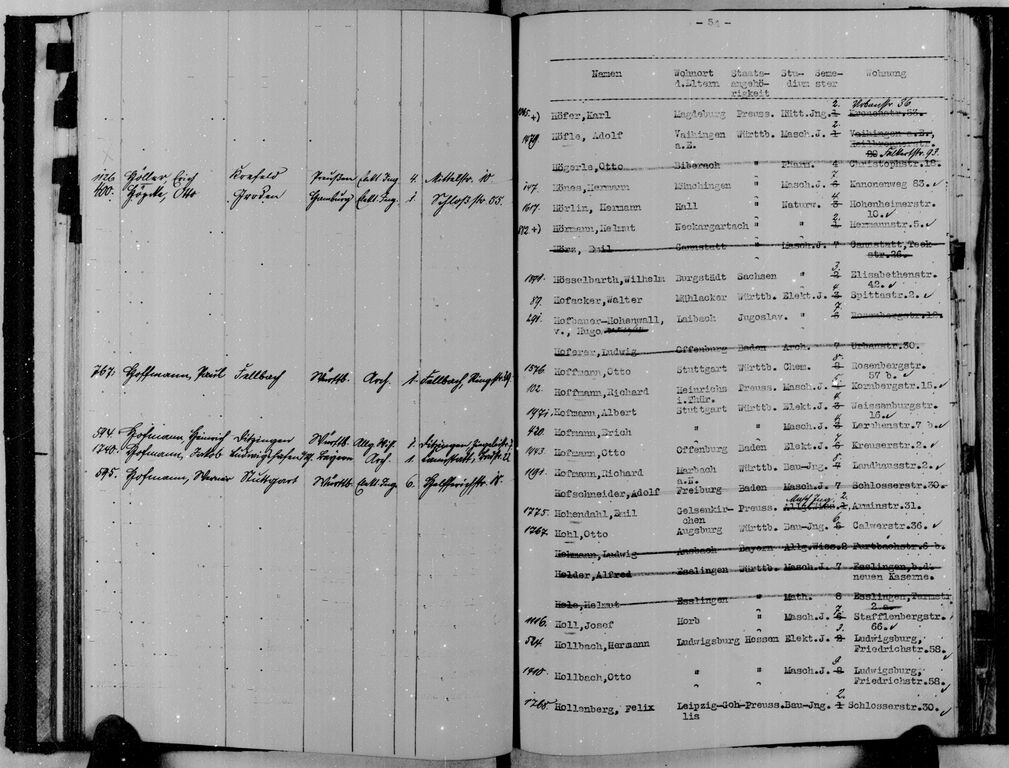 1126. Höller, Erich Krefeld Preußen Elekt. Ing. 4. Mittelstr. 10.
400. Höpcke, Otto Hamburg Elekt. Ing. 1. Schloßstr.
767. Hoffmann, Paul Fellbach Württb. Arch. 1. Fellbach, Ringstr.
594. Hofmann, Heinrich Ditzingen Württb. Allg. Wiss. 1. Ditzingen,
1740. Hofmann, Jakob Ludwigshafen Bayern Arch. 1. Cannstatt,
595. Hofmann, Werner Stuttgart Württb. Elekt. Ing. 6.
- 54 -
Namen Wohnort Staats- Stu- Seme- Wohnung
d.Eltern angehö- dium ster
rigkeit
2. Urbanstr. 56
+) Höfer, Karl Magdeburg Preuss. Hütt.Jng. 1 Kronenstr.53.
2.
Höfle, Adolf Vaihingen Württb. Masch.J. 1 Vaihingen a.E.,
a.E. Heilbronnerstr.
Falkertstr. 93.
Högerle, Otto Biberach " Pharm. 4 Christophstr.18.
7.
Hönes, Hermann Münchingen " Masch.J. 6 Kanonenweg 83.
4.
1617. Hörlin, Hermann Hall " Naturw. 3 Hohenheimerstr.
10.
2.
812 +) Hörmann, Helmut Neckargartach " " 1 Hermannstr.5.
Hörz, Emil Cannstatt " Masch.J. 7 Cannstatt, Teck-
str.26.
3.
Hösselbarth, Wilhelm Burgstädt Sachsen " 2 Elisabethenstr.
42.
4.
87. Hofacker, Walter Mühlacker Württb. Elekt.J. 3 Spittastr.2.
7.
291. Hofbauer-Hohenwall, Laibach Jugoslav. " 6 Rosenbergstr.
v., Hugo
Hoferer, Ludwig Offenburg Baden Arch. 7 Urbanstr.30.
8.
1576 Hoffmann, Otto Stuttgart Württb. Chem. Rosenbergstr.
57 b.
102. Hoffmann, Richard Heinrichs Preuss. Masch.J. Kornbergstr.15.
i.Thür.
4.
Hofmann, Albert Stuttgart Württb. Elekt.J. 3 Weissenburgstr.
16.
420. Hofmann, Erich " " Masch.J. Lerchenstr.7 b.
Hofmann, Otto Offenburg Baden Elekt.J. Kreuserstr.2.
8.
Hofmann, Richard Marbach Württb. Bau-Jng. Landhausstr.2.
a.E.
Hofschneider, Adolf Freiburg Baden Masch.J. 7 Schlosserstr.30.
Masch. Ing. 2.
1775. Hohendahl, Emil Gelsenkir- Preuss. Allg.Wiss. 1 Arminstr.31.
chen
6.
1767. Hohl, Otto Augsburg Württb. Bau-Jng. Calwerstr.36.
Hohmann, Ludwig Ansbach Bayern Allg.Wiss. 2 Furtbachstr.6 b.
Holder, Alfred Esslingen Württb. Masch.J. 7 Esslingen, b.d.
neuen Kaserne.
Hole, Helmut Esslingen " Math. 8 Esslingen, Turmstr.
2 a.
7.
Holl, Josef Horb " Masch.J. 6 Stafflenbergstr.
66.
3.
524. Hollbach, Hermann Ludwigsburg Hessen Elekt.J. 2 Ludwigsburg,
Friedrichstr.58.
9.
Hollbach, Otto " " Masch.J. 8 Ludwigsburg,
Friedrichstr.58.
2.
1765. Hollenberg, Felix Leipzig-Goh- Preuss. Bau-Jng. 1 Schlosserstr.30.
lis